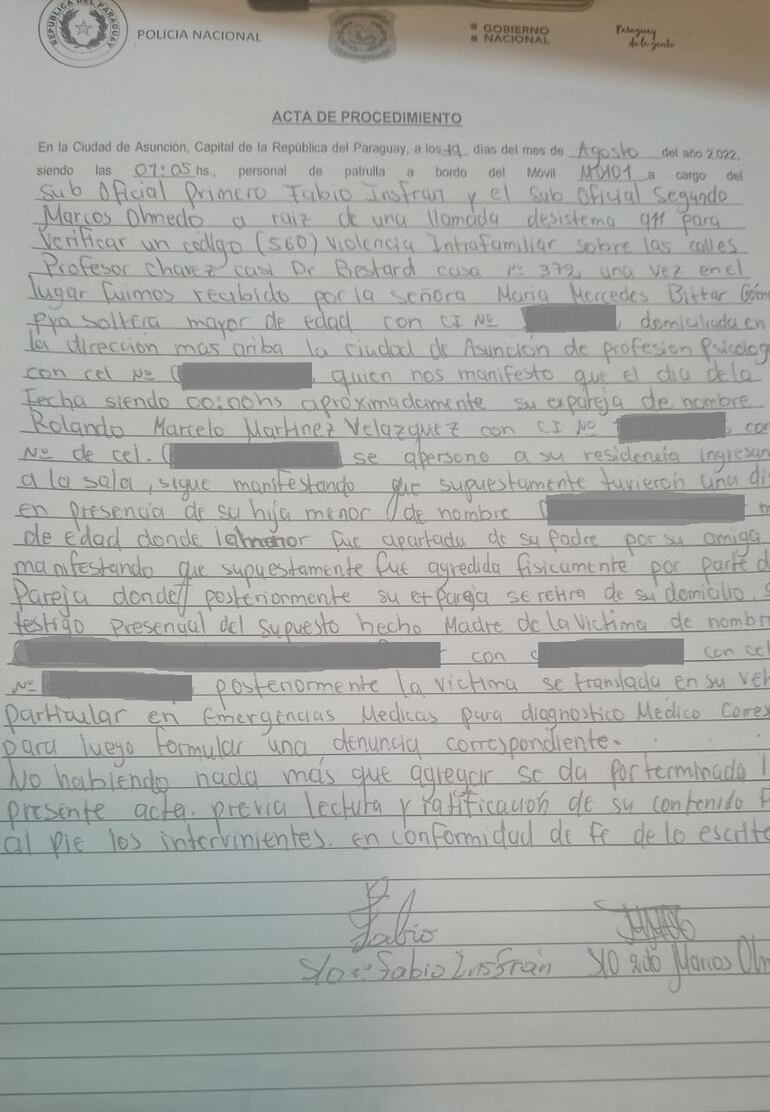 REPUBLICA DEL PARAGUAY
POLICIA NACIONAL
GOBIERNO
NACIONAL
Paraguay
de la gente
ACTA DE PROCEDIMIENTO
En la Ciudad de Asunción, Capital de la República del Paraguay, a los 19 días del mes de Agosto del año 2.022,
siendo las 01:05 hs., personal de patrulla a bordo del Móvil M0101 a cargo del
Sub Oficial Primero Fabio Insfran y el Sub Oficial Segundo
Marcos Olmedo a raiz de una llamada desistema 911 para
Verificar un código (S60) Violencia Intrafamiliar sobre las calles
Profesor Chavez casi Dr Bestard casa n° 372, una vez en el
lugar fuimos recibido por la Señora Maria Mercedes Bittar Góm
Pya soltera mayor de edad con CI Nº domiciliada en
la dirección mas arriba la ciudad de Asunción de profesion Psicolog
con cel Nº quien nos manifesto que el día de la
Fecha siendo 00:00hs apróximadamente su expareja de nombre
Rolando Marcelo Martinez Velazquez con CI Nº con
Nº de cel. se apersono a su residencia ingresan
a la sala, sigue manifestando que supuestamente tuvieron una di
en presencia de su hija menor de nombre m
de edad donde la menor fue apartada de su padre por su amiga
manifestando que supuestamente fue agredida fisicamente por parte d
Pareja donde posteriormente su expareja se retira de su domicilio, s
testigo presencial del supuesto hecho Madre de la victima de nombr
con c con cel
Nº posteriormente la victima se translada en su veh
particular en Emergencias Medicas para diagnostico Médico Corres
para luego formular una denuncia correspondiente.
No habiendo nada más que agregar se da por terminada l
presente acta. previa lectura y ratificación de su contenido F
al pie los intervinientes. en conformidad de fe de lo escrito
Fabio
S/O 1º Fabio Insfrán S/O 2do Marcos Olm